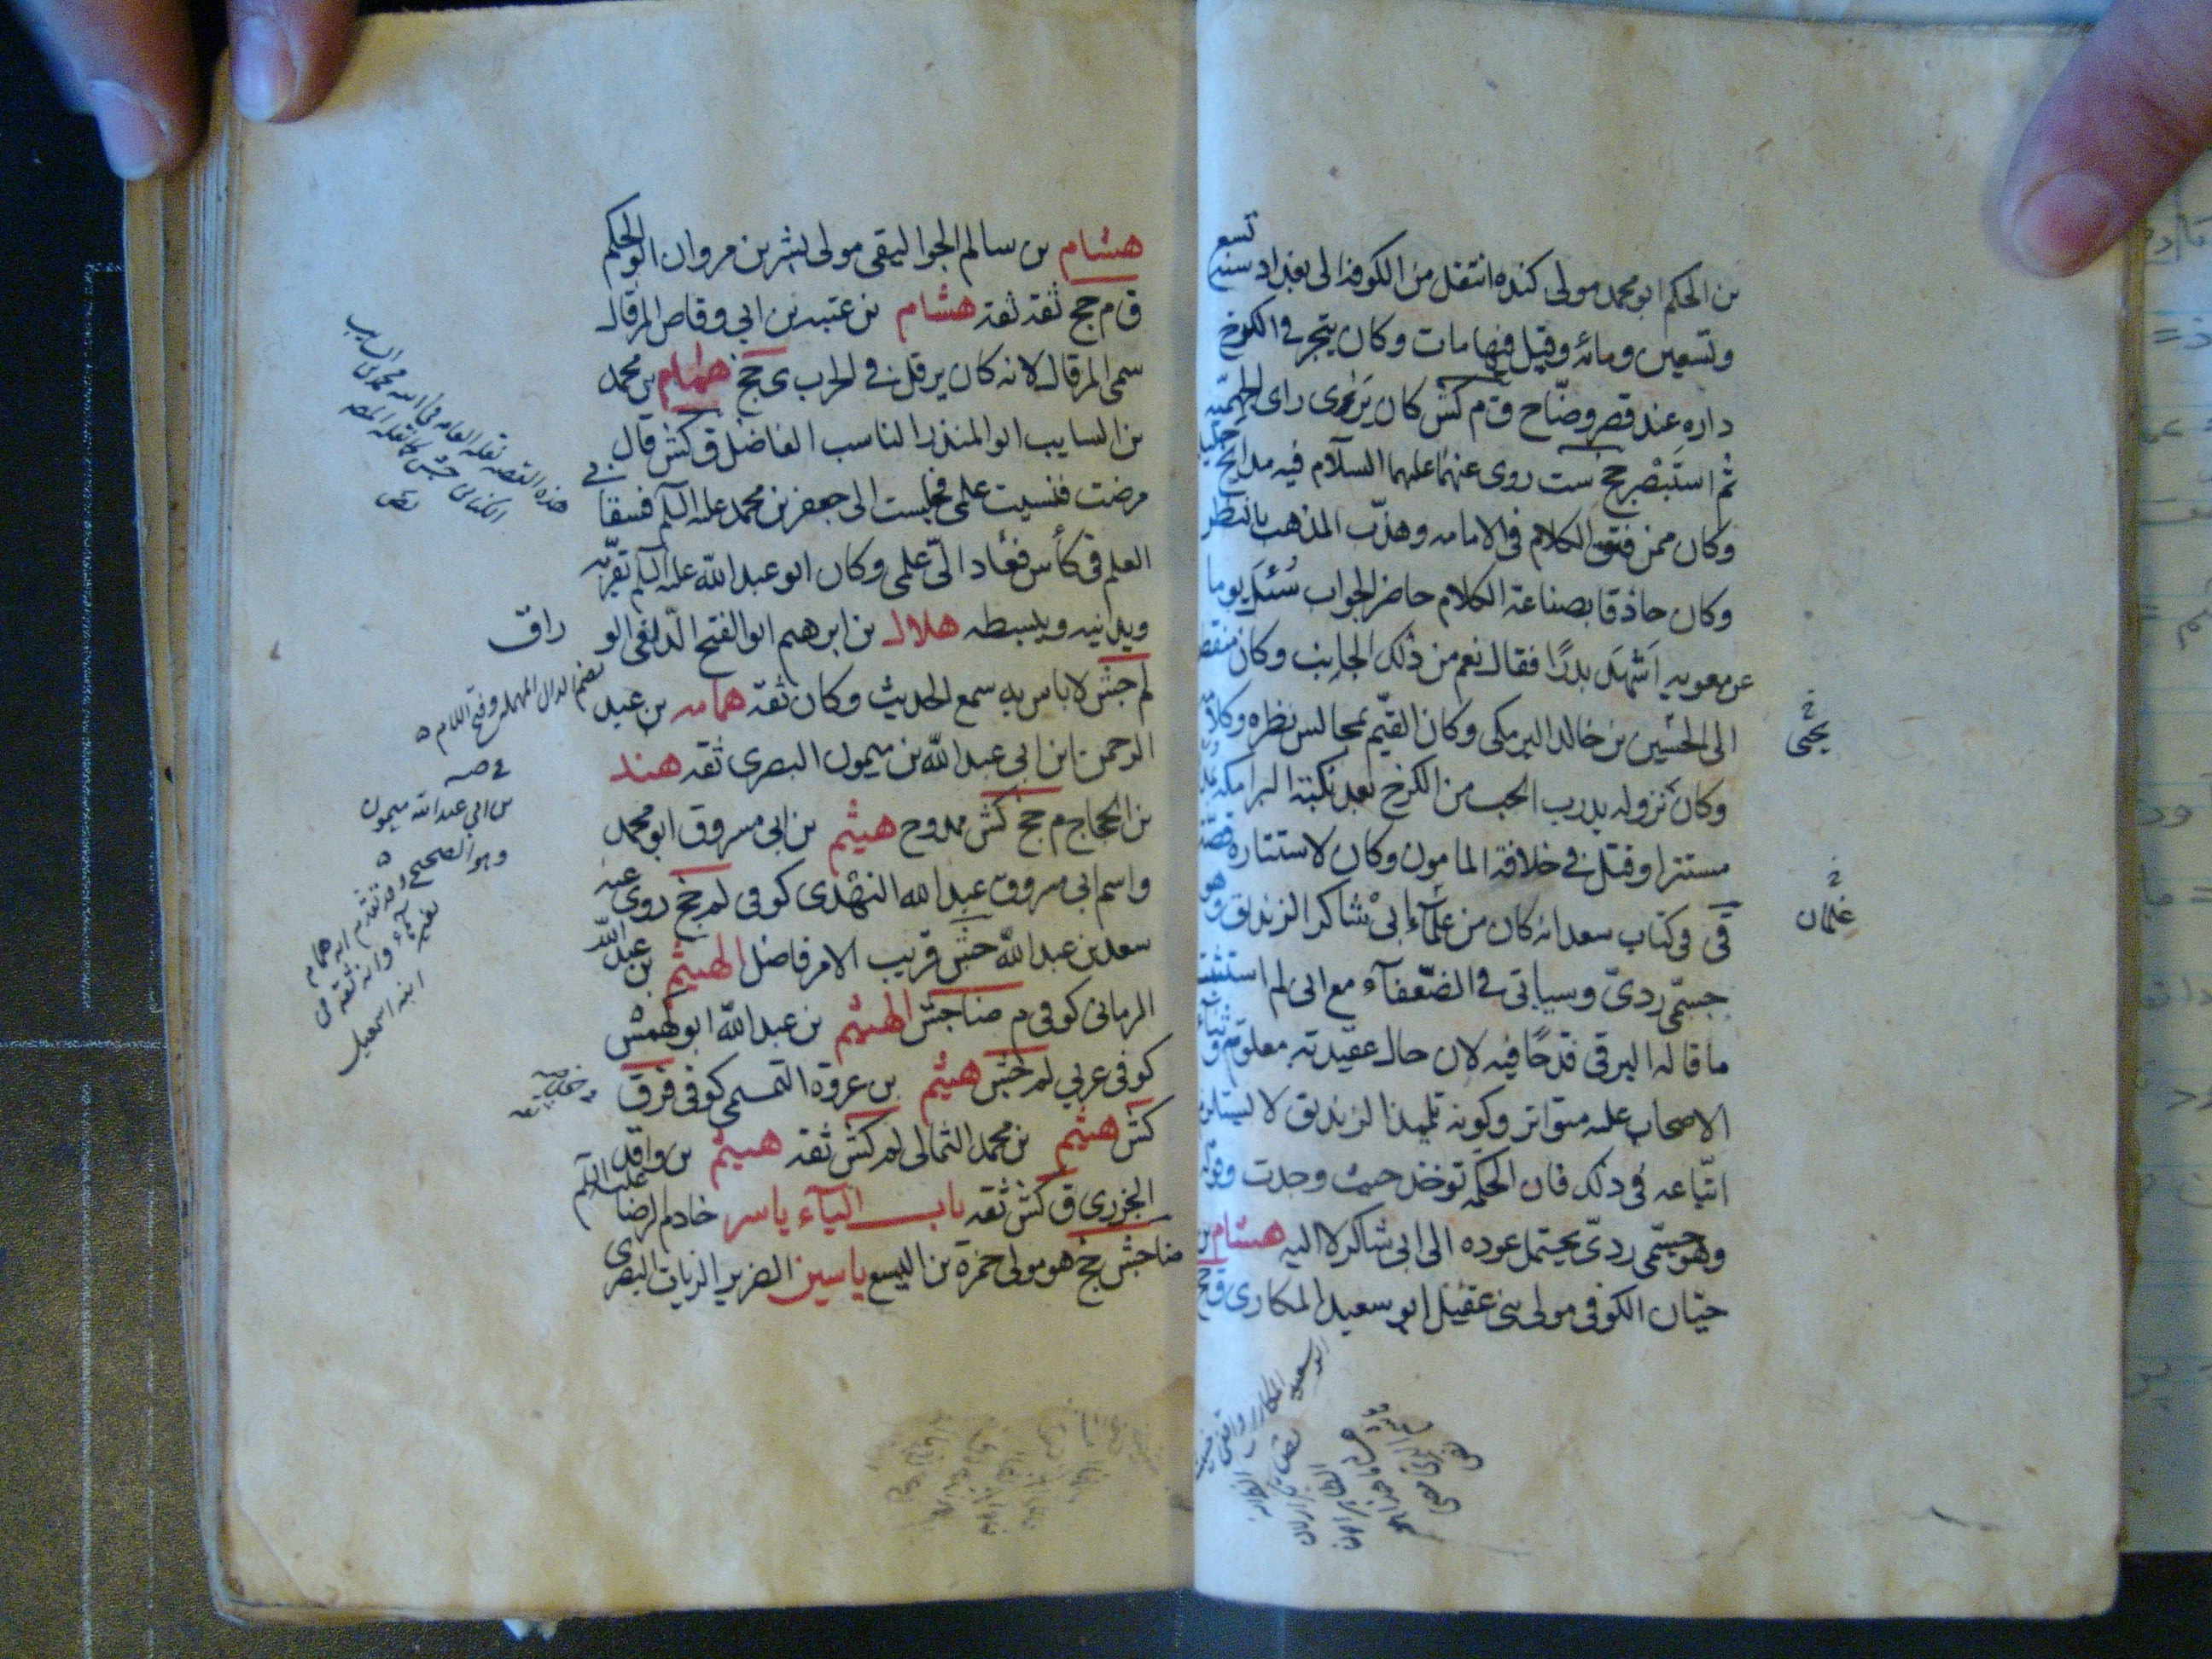 بن الحكم ابو محمد مولى كنده انتقل من الكوفة الى بغداد سنه تسع
وتسعين ومائه وقيل فيها مات وكان يتجر في الكرخ
داره عند قصر وضّاح ق م كش كان يرى راى الجهميّه
ثم استبصر جخ ست روى عنهما عليهما السلام فيه مدايح جليله
وكان ممن فتق الكلام في الامامه وهذّب المذهب بالنظر
وكان حاذقا بصناعة الكلام حاضر الجواب سُئل يوما
عن معويه اَشهَد بدرًا فقال نعم من ذلك الجانب وكان منقطعا
الى الحسين بن خالد البرمكى وكان القيّم بمجالس نظره وكلامه
يحيى
وكان نزوله بدرب الجب من الكرخ بعد نكبة البرامكه
مستترا وقتل في خلافة المامون وكان لاستتاره قصّة
قي في كتاب سعد انه كان من علمآء ابى شاكر الزنديق وهو
غلمان
جسمّى ردىّ وسياتى في الضّعفآء مع انى لم استثبت
ما قاله البرقى قدحًا فيه لان حال عقيدته معلوم وثناء
الاصحاب عليه متواتر وكونه تلميذ الزنديق لا يستلزم
اتّباعه في ذلك فان الحكمه توخذ حيث وجدت وقوله
وهو جسمّى ردىّ يحتمل عوده الى ابى شاكر لا اليه هشام بن
حيّان الكوفى مولى بنى عقيل ابو سعيد المكارى ق جخ
هشام بن سالم الجواليقى مولى بشر بن مروان ابو الحكم
ق م جخ ثقة ثقة هشام بن عتبه بن ابي وقاص المرقال
سمى المرقال لانه كان يرقل في الحرب ى جخ هشام بن محمد
بن السايب ابو المنذر الناسب الفاضل ق كش قال
مرضت فنسيت علمى فجلست الى جعفر بن محمد عليه السلم فسقانى
العلم في كأس فعاد الىّ علمى وكان ابو عبد الله عليه السلم يقرّبه
ويدنيه ويبسطه هلال بن ابرهيم ابو الفتح الدّلفى الوراق
لم جش لا باس به سمع الحديث وكان ثقة همامه بن عبد
الرحمن بن ابى عبد الله بن ميمون البصرى ثقه هند
بن الحجاج م جخ كش ممدوح هيثم بن ابى مسروق ابو محمد
واسم ابى مسروق عبد الله النهدى كوفى لم جخ روى عنه
سعد بن عبد الله جش قريب الامر فاضل الهيثم بن عبد الله
الرمانى كوفى م ضا جش الهيثم بن عبد الله ابو كهمش
كوفى عربي لم جش هيثم بن عروة التميمى كوفى ق ق
كش هيثم بن محمد الثمالى لم كش ثقه هيثم بن واقد
الجزرى ق كش ثقه باب اليآء ياسر خادم الرضا عليه السلم
ضا جش جخ هو مولى حمزة بن اليسع ياسين الضرير الزيات البصرى
بضم الدال المهملة وفتح اللام
في صه
بن ابي عبد الله ميمون
وهو الصحيح وقد تقدم
ابنه اسمعيل